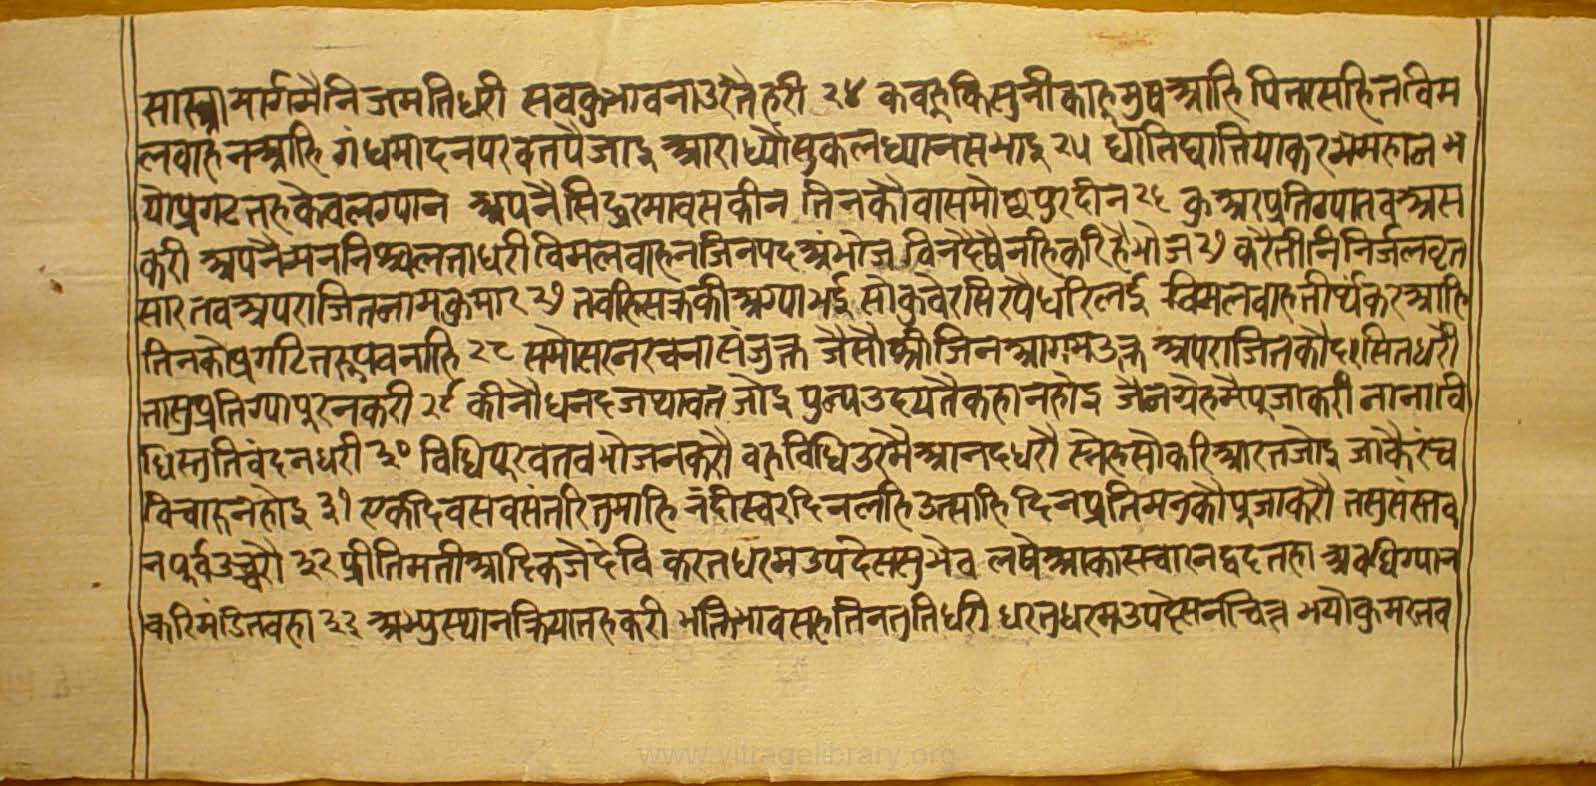 सास्त्रामार्गमैनिजमतिधरी सवकुभावनाउरतैहरी २४ कवहूकिसुनीकाहूमुषआहि पितासहितविम
लवाहनआहि गंधमादनपरवतपैजाइ आराध्यौसुकलध्यानसभाइ २५ घातिघातियाकरमभमहान भ
योप्रगटतहकेवलग्यान अपनैसिद्धरमावसकीन तिनकौवासमोछपुरदीन २६ कुअरप्रतिग्यातवअस
करी अपनैमननिश्चलताधरी विमलवाहनजिनपदअंभोज विनदेषैनहिकरिहैभोज २७ करैतीनिनिर्जलवृत
सार तवअपराजितनामकुमार २७ तवहिसक्रकीअग्पाभई सोकुवेरसिरपैधरिलई विमलवाहतीर्थंकरआहि
तिनकोप्रगटितरूपवनाहि २८ समोसरनरचनासंजुक्त जैसौश्रीजिनआगमउक्त अपराजितकौदरसितधरौ
तासुप्रतिग्यापुरनकरी २९ कीनौधनदजथावतजोइ पुन्यउदयतैकहानहोइ जैनग्रेहमैपुजाकरी नानावि
धिस्तुतिवंदनधरी ३० विधिपुरवतवभोजनकरौ वहुविधिउरमैआनदधरौ स्नेहसौकरिआरतजोइ जाकैरंच
विचारुनहोइ ३१ एकदिवसवसंतरितुमाहि नंदीस्वरदिनलहिउत्साहि दिनप्रतिमनुकौपुजाकरौ तसुसंस्तव
नपुर्वउच्चरौ ३२ प्रीतिमतीआदिकजेदेवि करतधरमउपदेससुभेव लषेआकासचारनद्वदतहा अवधिग्यान
करिमंडितवहा ३३ अभ्युस्थानक्रियातहकरी भक्तिभावसहतिनतुतिधरी धरतुधरमउपदेसनचित्त भयौकुमरतव